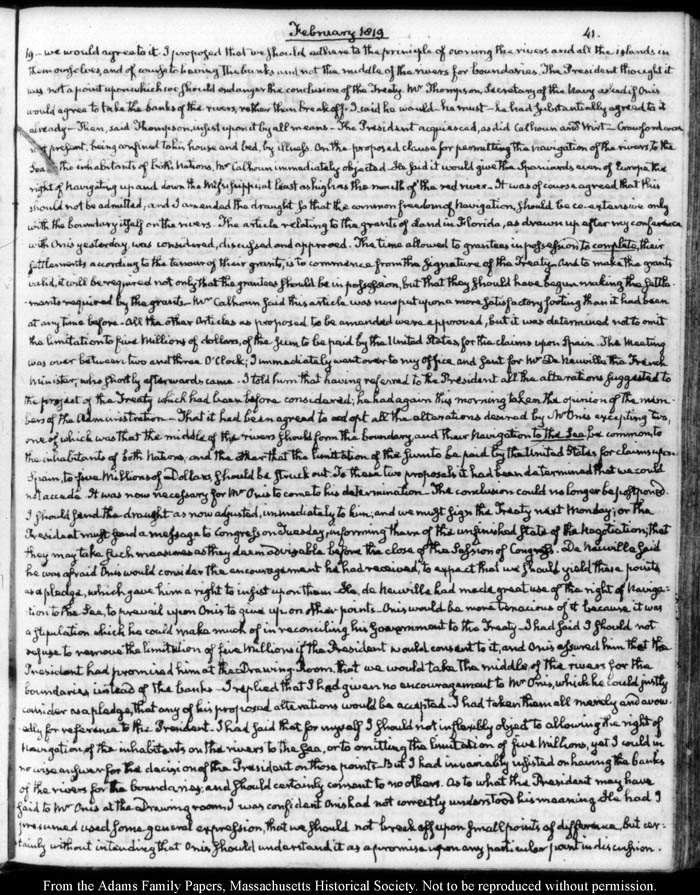 February 1819
41.
19 — we would agree to it. I proposed that we should adhere to the principle of owning the rivers and all the islands in
them ourselves, and of course to having the banks and not the middle of the rivers for boundaries. The President thought it
was not a point upon which we should endanger the conclusion of the Treaty. Mr Thompson, Secretary of the Navy asked if Onis
would agree to take the banks of the rivers, rather than break off. I said he would — he must — he had substantially agreed to it
already — Then, said Thompson, insist upon it by all means — The President acquiesced, as did Calhoun and Wirt — Crawford was
not present, being confined to his house and bed, by illness. On the proposed clause for permitting the navigation of the rivers to the
Sea to the inhabitants of both Nations, Mr Calhoun immediately objected. He said it would give the Spaniards even of Europe the
right of navigating up and down the Mississippi at least as high as the mouth of the red river. It was of course agreed that this
should not be admitted, and I amended the draught so that the common freedom of Navigation, should be co-extensive only
with the boundary itself on the rivers. The article relating to the grants of land in Florida, as drawn up after my conference
with Onis yesterday, was considered, discussed and approved. The time allowed to grantees in possession to complete, their
settlements according to the tenour of their grants, is to commence from the Signature of the Treaty. And to make the grants
valid, it will be required not only that the grantees should be in possession, but that they should have begun making the settle-
-ments required by the grants — Mr Calhoun said this article was now put upon a more satisfactory footing than it had been
at any time before — All the other Articles as proposed to be amended were approved, but it was determined not to omit
the limitation to five Millions of dollars, of the sum to be paid by the United States, for the claims upon Spain. The Meeting
was over between two and three O'Clock; I immediately went over to my office, and sent for Mr De Neuville the French
Minister, who shortly afterwards came. I told him that having referred to the President all the alterations suggested to
the project of the Treaty which had been before considered; he had again this morning taken the opinion of the mem-
bers of the Administration — That it had been agreed to adopt all the alterations desired by Mr Onis excepting two,
one of which was that the middle of the rivers should form the boundary and their Navigation to the Sea be common to
the inhabitants of both Nations, and the other that the limitation of the sum to be paid by the United States for claims upon
Spain, to five Millions of Dollars, should be struck out. To these two proposals it had been determined that we could
not accede. It was now necessary for Mr Onis to come to his determination — The conclusion could no longer be postponed.
I should send the draught as now adjusted, immediately to him; and we must sign the Treaty next Monday; or the
President must send a message to Congress on Tuesday, informing them of the unfinished state of the Negotiation, that
they may take such measures as they deem advisable before the close of the Session of Congress. De Neuville said
he was afraid Onis would consider the encouragement he had received, to expect that we should yield these points
as a pledge, which gave him a right to insist upon them — He, de Neuville had made great use of the right of Naviga-
tion to the Sea, to prevail upon Onis to give up on other points — Onis would be more tenacious of it because it was
a stipulation which he could make much of in reconciling his Government to the Treaty — I had said I should not
refuse to remove the limitation of five Millions if the President would consent to it, and Onis assured him that the
President had promised him at the Drawing Room, that we would take the middle of the rivers for the
boundaries instead of the banks — I replied that I had given no encouragement to Mr Onis, which he could justly
consider as a pledge, that any of his proposed alterations would be accepted. I had taken them all merely and avow-
edly for reference to the President. I had said that for myself I should not inflexibly object to allowing the right of
Navigation of the inhabitants on the rivers to the Sea, or to omitting the limitation of five Millions, yet I could in
no wise answer for the decision of the President on those points — But I had invariably insisted on having the banks
of the rivers for the boundaries; and should certainly consent to no others. As to what the President may have
said to Mr Onis at the Drawing room, I was confident Onis had not correctly understood his meaning. He had I
presumed used some general expression, that we should not break off upon small points of difference, but cer-
tainly without intending that Onis should understand it as a promise upon any particular point in discussion.
From the Adams Family Papers, Massachusetts Historical Society. Not to be reproduced without permission.